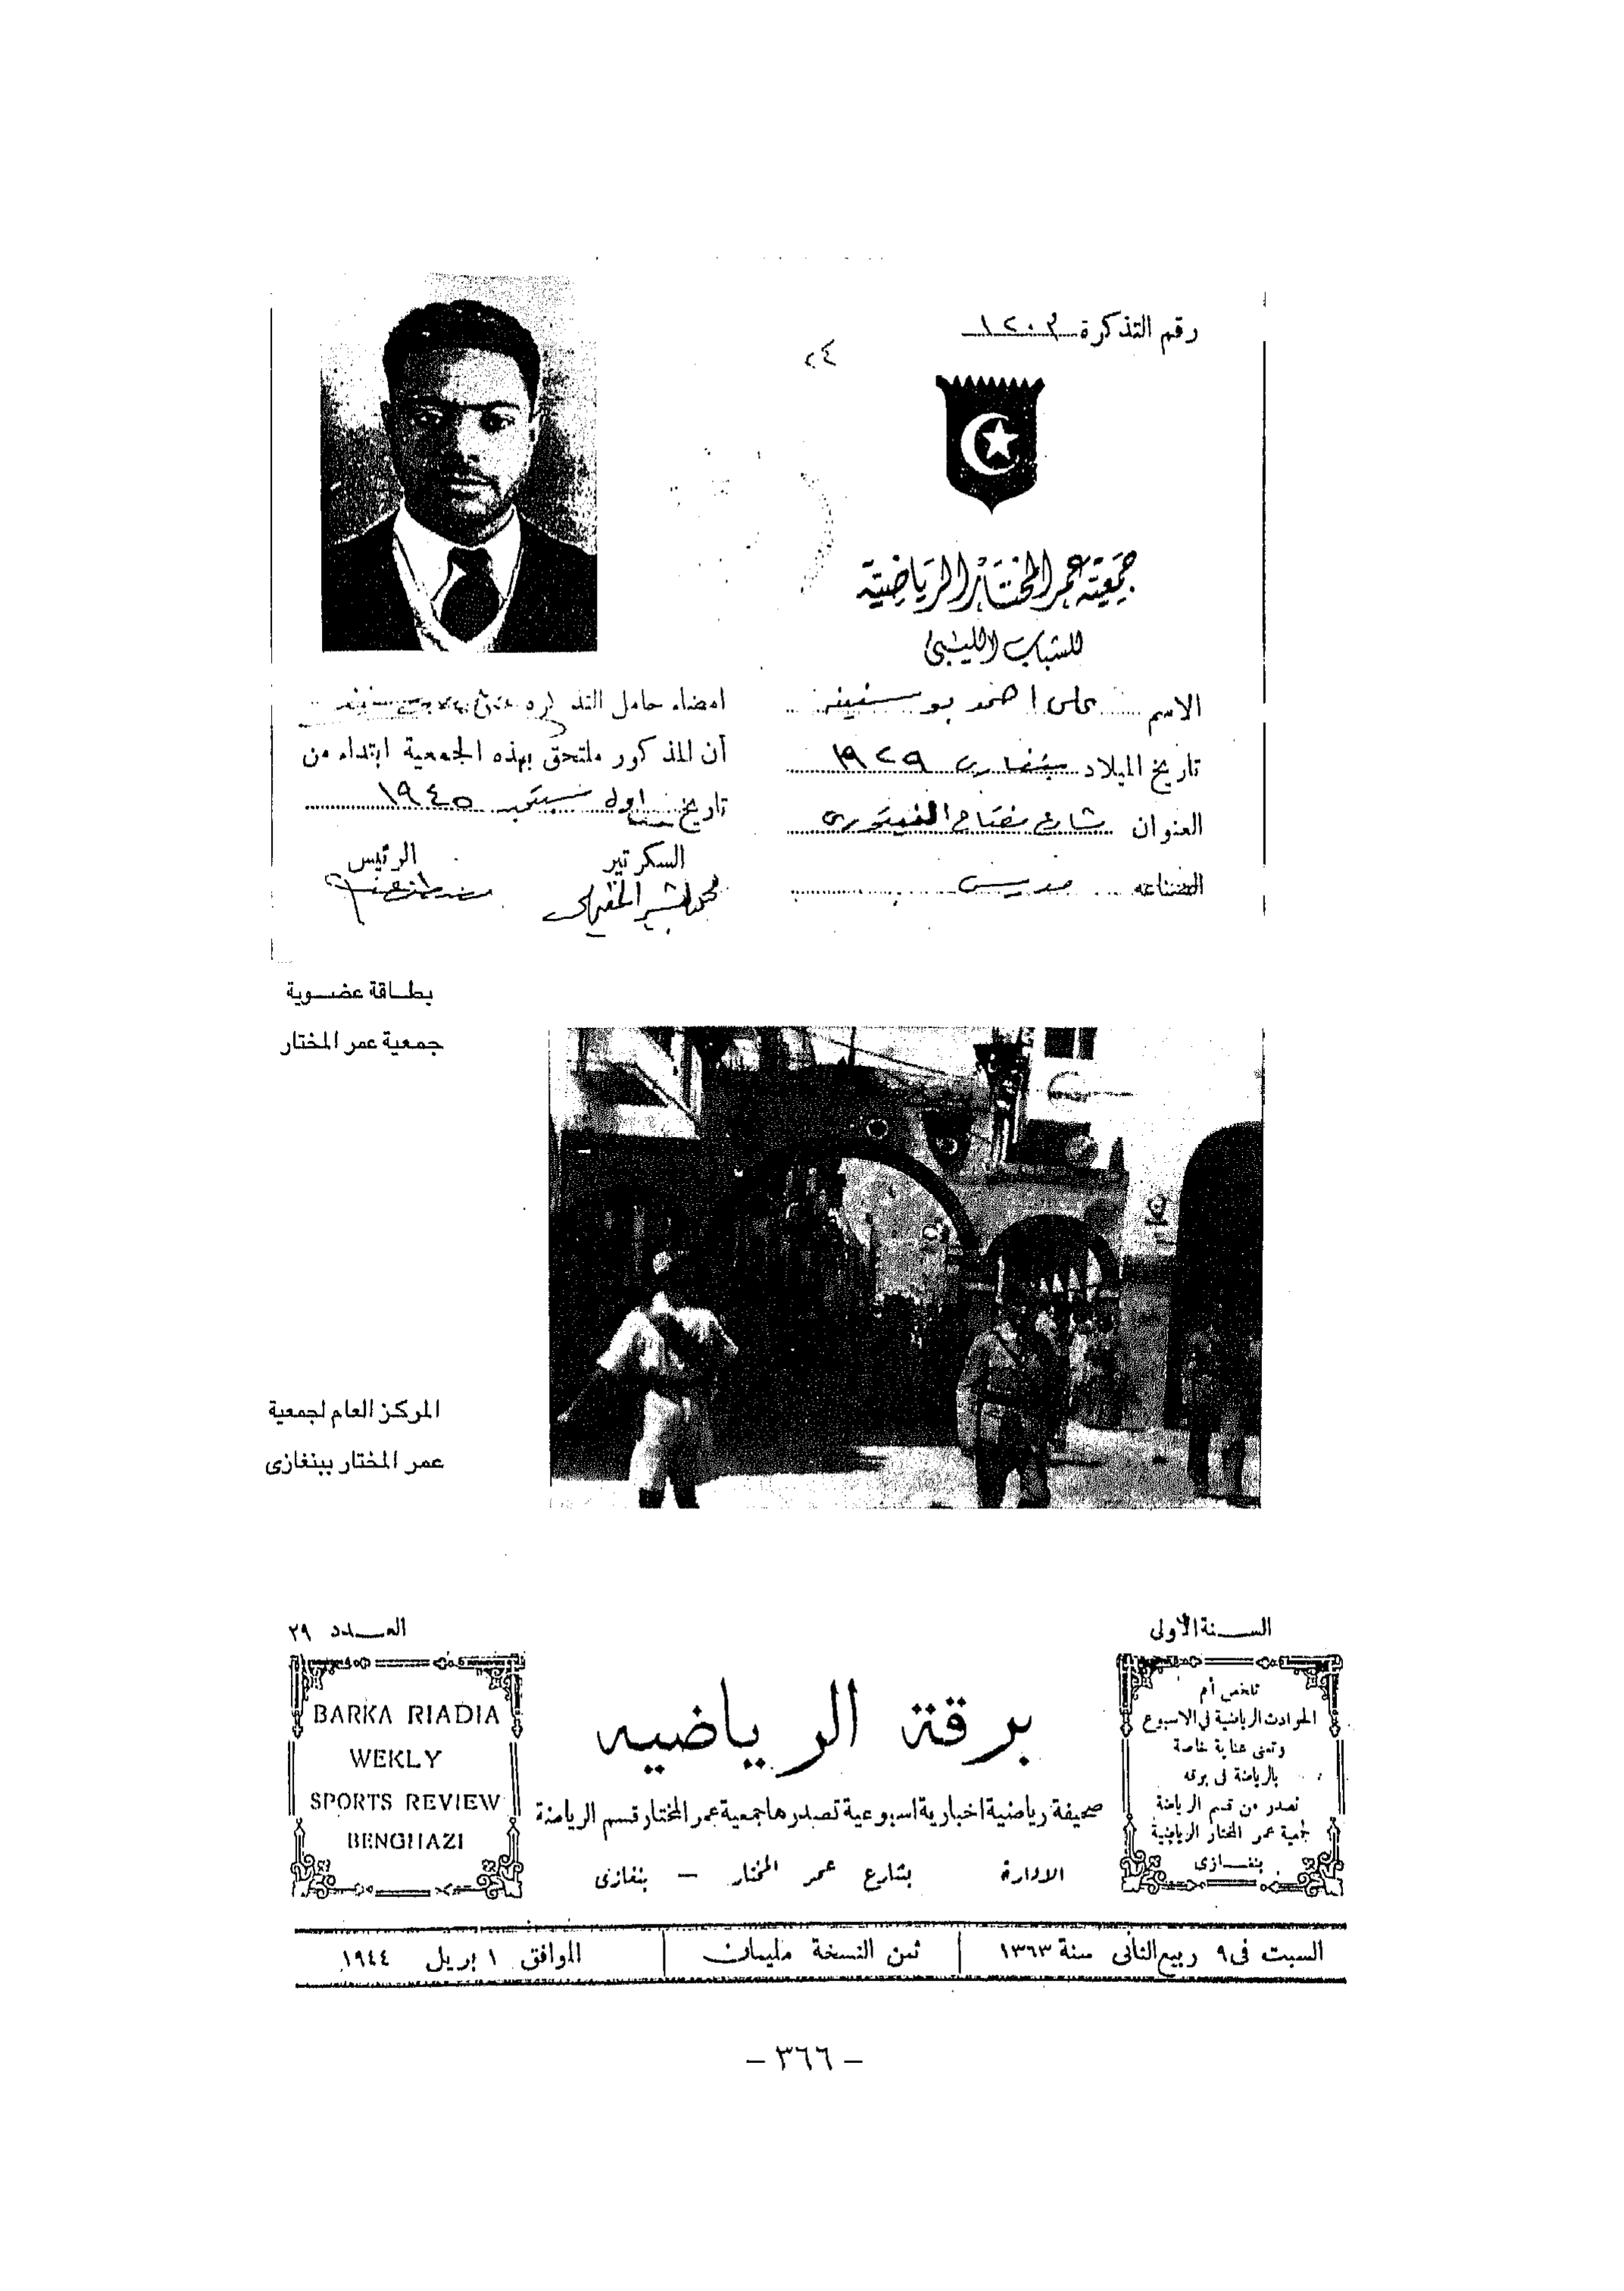 رقم التذكرة ١٢٠٣
٢٤
جمعية عمر المختار الرياضية
للشباب الليبي
الاسم على احمد بو سنينه
تاريخ الميلاد بنغازى ١٩٢٩
العنوان شارع مفتاح
الصناعه مدرس
امضاء حامل التذكره
أن المذكور ملتحق بهذه الجمعية ابتداء من
تاريخ اول سبتمبر ١٩٤٥
السكرتير
الرئيس
بطاقة عضوية
جمعية عمر المختار
المركز العام لجمعية
عمر المختار ببنغازى
السنة الأولى
العدد ٢٩
تلخص أم
الحوادث الرياضية في الاسبوع
وتعنى عناية خاصة
بالرياضة فى برقه
تصدر من قسم الرياضة
لجمية عمر المختار الرياضية
بنغازى
برقة الرياضيه
صحيفة رياضية اخبارية اسبوعية تصدرها جمعية عمر المختار قسم الرياضة
الادارة بشارع عمر المختار — بنغازى
BARKA RIADIA
WEKLY
SPORTS REVIEW
BENGHAZI
السبت فى ٩ ربيع الثانى سنة ١٣٦٣
ثمن النسخة مليمان
الموافق ١ بريل ١٩٤٤
— ٣٦٦ —